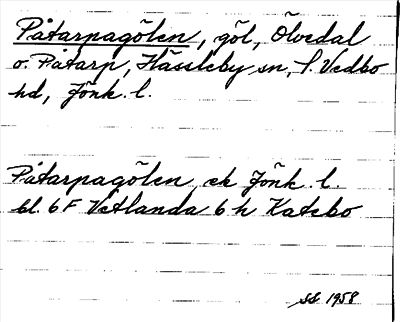 Påtarpagölen, göl, Ölvedal
o. Påtarp, Hässleby sn, S. Vedbo
hd, Jönk. l.
Påtarpagölen ek Jönk. l.
bl. 6 F Vetlanda 6 h Katebo
SS 1958